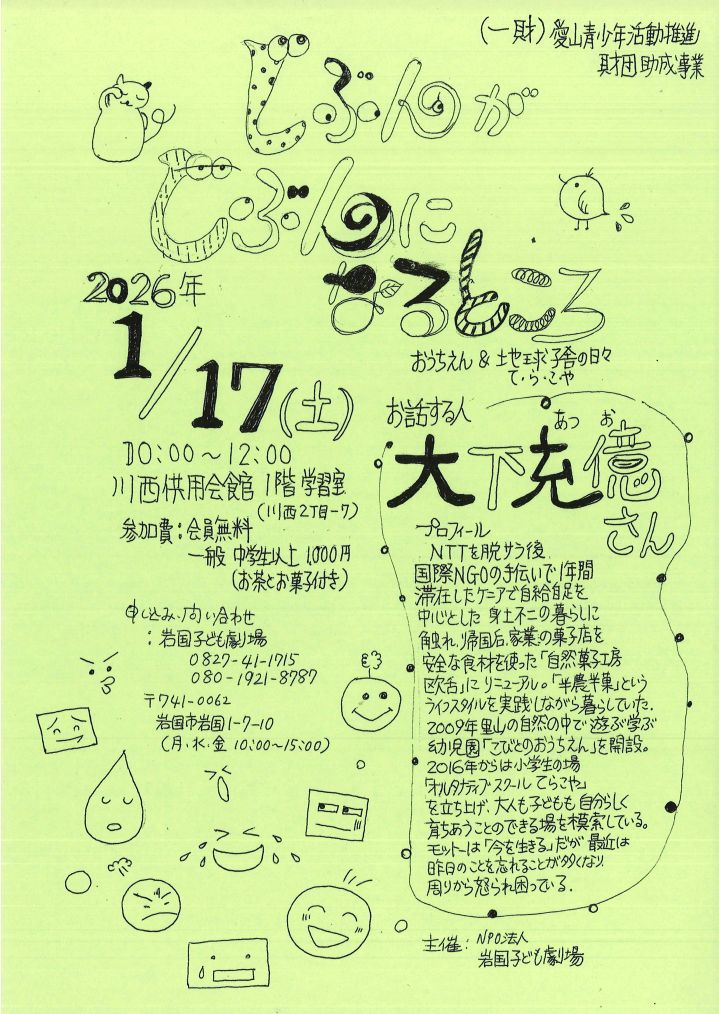 (一財)愛山青少年活動推進
財団助成事業
じぶんが
じぶんに
なるところ
おうちえん & 地球子舎の日々
て・ら・こ・や
2026年
1/17(土)
10:00〜12:00
川西供用会館 1階 学習室
(川西2丁目-7)
参加費:会員無料
一般 中学生以上 1,000円
(お茶とお菓子付き)
申し込み、問い合わせ
:岩国子ども劇場
0827-41-1715
080-1921-8787
〒741-0062
岩国市岩国1-7-10
(月・水・金 10:00〜15:00)
お話する人
あつ お
大下充億
さん
プロフィール
NTTを脱サラ後
国際NGOの手伝いで1年間
滞在したケニアで自給自足を
中心とした 身土不二の暮らしに
触れ、帰国后、家業の菓子店を
安全な食材を使った「自然菓子工房
欧舌」に リニューアル。「半農半菓」という
ライフスタイルを実践しながら暮らしていた.
2009年里山の自然の中で 遊ぶ学ぶ
幼児園「こびとのおうちえん」を開設。
2016年からは小学生の場
「オルタナティブスクール てらこや」
を立ち上げ、大人も子どもも 自分らしく
育ちあうことのできる場を模索している。
モットーは「今を生きる」だが 最近は
昨日のことを忘れることが多くなり
周りから怒られ困っている.
主催: NPO法人
岩国子ども劇場